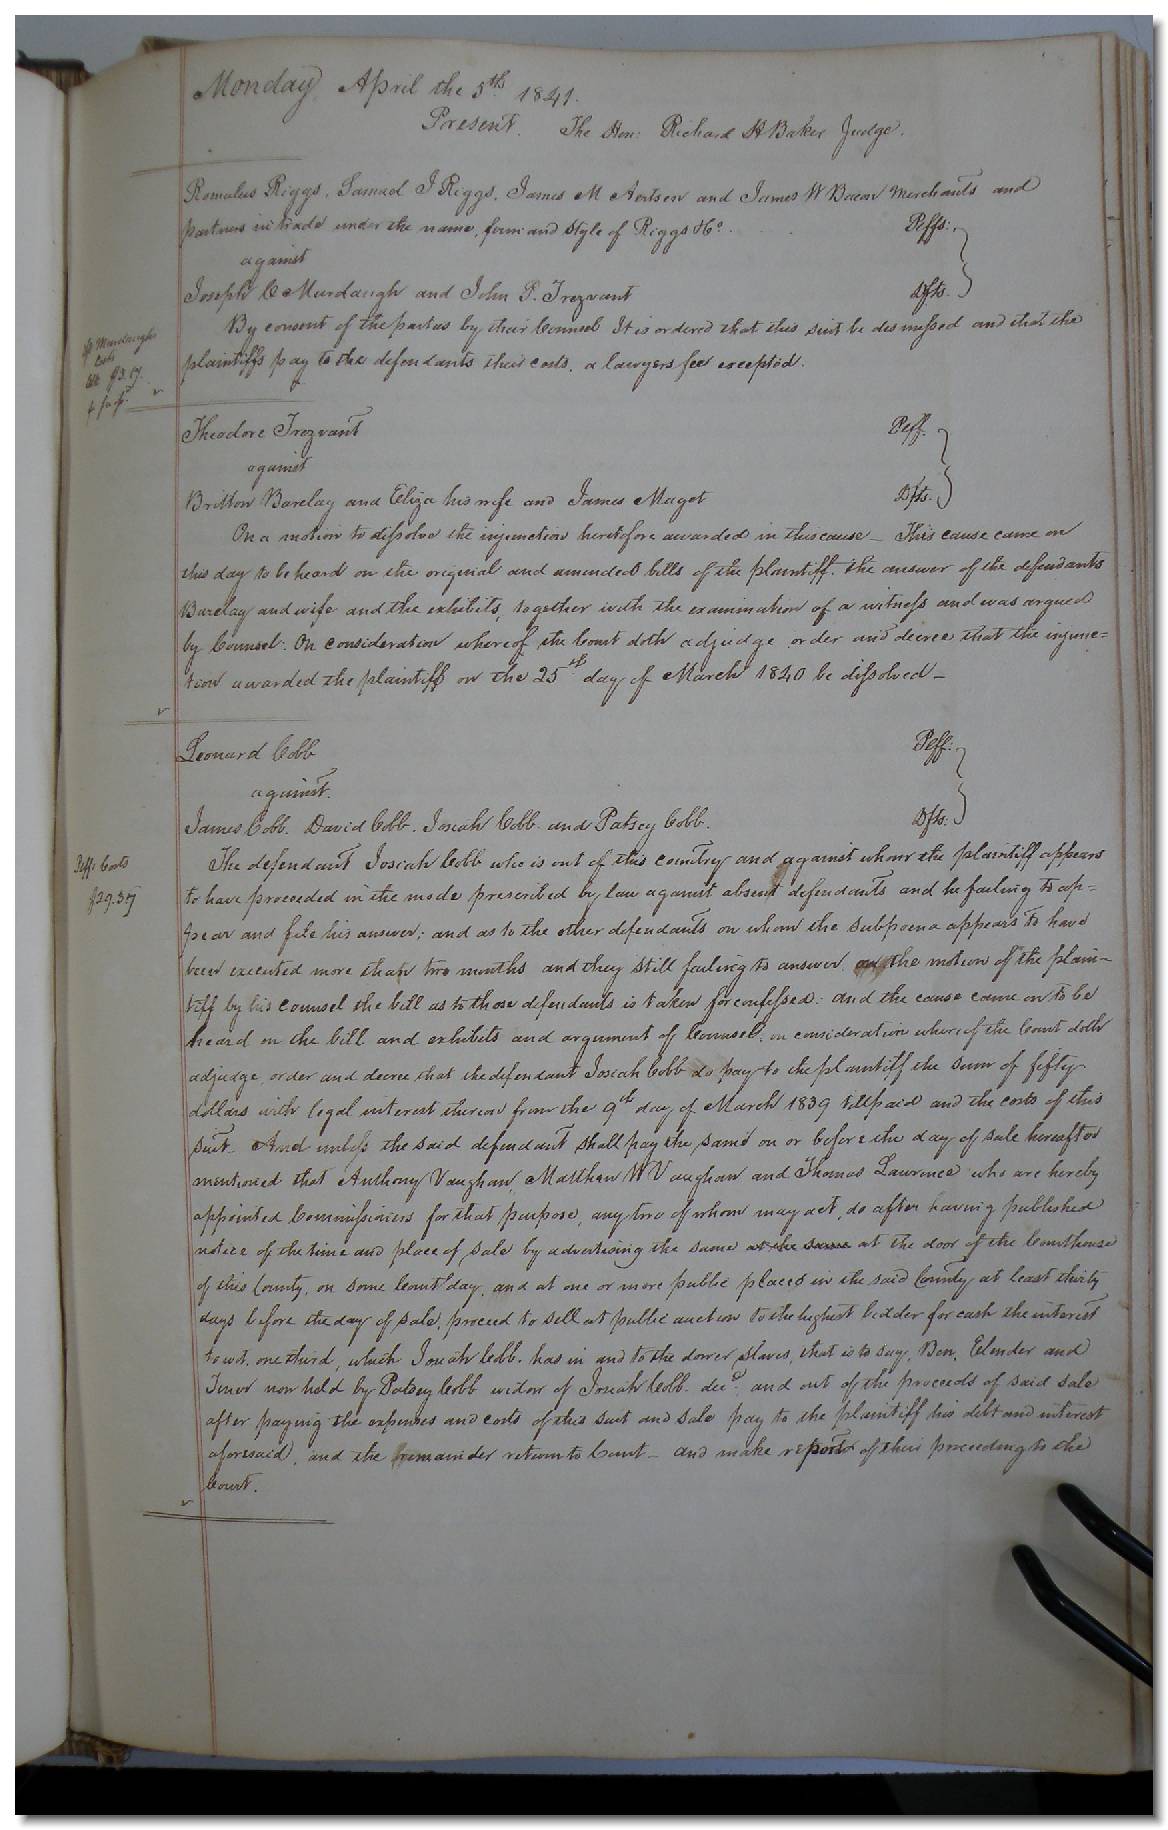 Monday April the 5th 1841.
Present. The Hon: Richard H Baker Judge.
Romulus Riggs, Samuel J Riggs, James M Aertsen and James W Bacon Merchants and
partners in trade under the name, firm and style of Riggs & Co. Plffs.
against
Joseph C Murdaugh and John P. Trezvant Dfts.
By consent of the parties by their Counsel It is ordered that this suit be dismissed and that the
plaintiffs pay to the defendants their costs, a lawyers fee excepted.
Murdaughs
Costs
$3.17.
Theodore Trezvant Plff.
against
Britton Barclay and Eliza his wife and James Maget Dfts.
On a motion to dissolve the injunction heretofore awarded in this cause – This cause came on
this day to be heard on the original and amended bills of the plaintiff, the answer of the defendants
Barclay and wife and the exhibits, together with the examination of a witness and was argued
by Counsel: On consideration whereof the Court doth adjudge order and decree that the injunc=
tion awarded the plaintiff on the 25th day of March 1840 be dissolved –
Leonard Cobb Plff.
against
James Cobb. David Cobb. Josiah Cobb and Patsey Cobb. Dfts.
Plffs Costs
$29.37
The defendant Josiah Cobb who is out of this country and against whom the plaintiff appears
to have proceeded in the mode prescribed by law against absent defendants and he failing to ap=
pear and file his answer; and as to the other defendants on whom the subpoena appears to have
been executed more than two months and they still failing to answer, on the motion of the plain–
tiff by his counsel the bill as to those defendants is taken for confessed: and the cause came on to be
heard on the bill and exhibits and argument of Counsel: on consideration whereof the Court doth
adjudge, order and decree that the defendant Josiah Cobb do pay to the plaintiff the sum of fifty
dollars with legal interest thereon from the 9th day of March 1839 till paid and the costs of this
suit. And unless the said defendant shall pay the same on or before the day of sale hereafter
mentioned that Anthony Vaughan, Matthew W Vaughan and Thomas Lawrence who are hereby
appointed Commissioners for that purpose, any two of whom may act, do after having published
notice of the time and place of sale by advertising the same at the same at the door of the Courthouse
of this County, on some Court day, and at one or more public places in the said County at least thirty
days before the day of sale, proceed to sell at public auction to the highest bidder for cash the interest
to wit, one third, which Josiah Cobb has in and to the dower slaves, that is to say, Ben, Elender and
now held by Patsey Cobb widow of Josiah Cobb decd. and out of the proceeds of said sale
after paying the expenses and costs of this suit and sale pay to the plaintiff his debt and interest
aforesaid, and the remainder return to Court – and make report of their proceeding to the
Court.